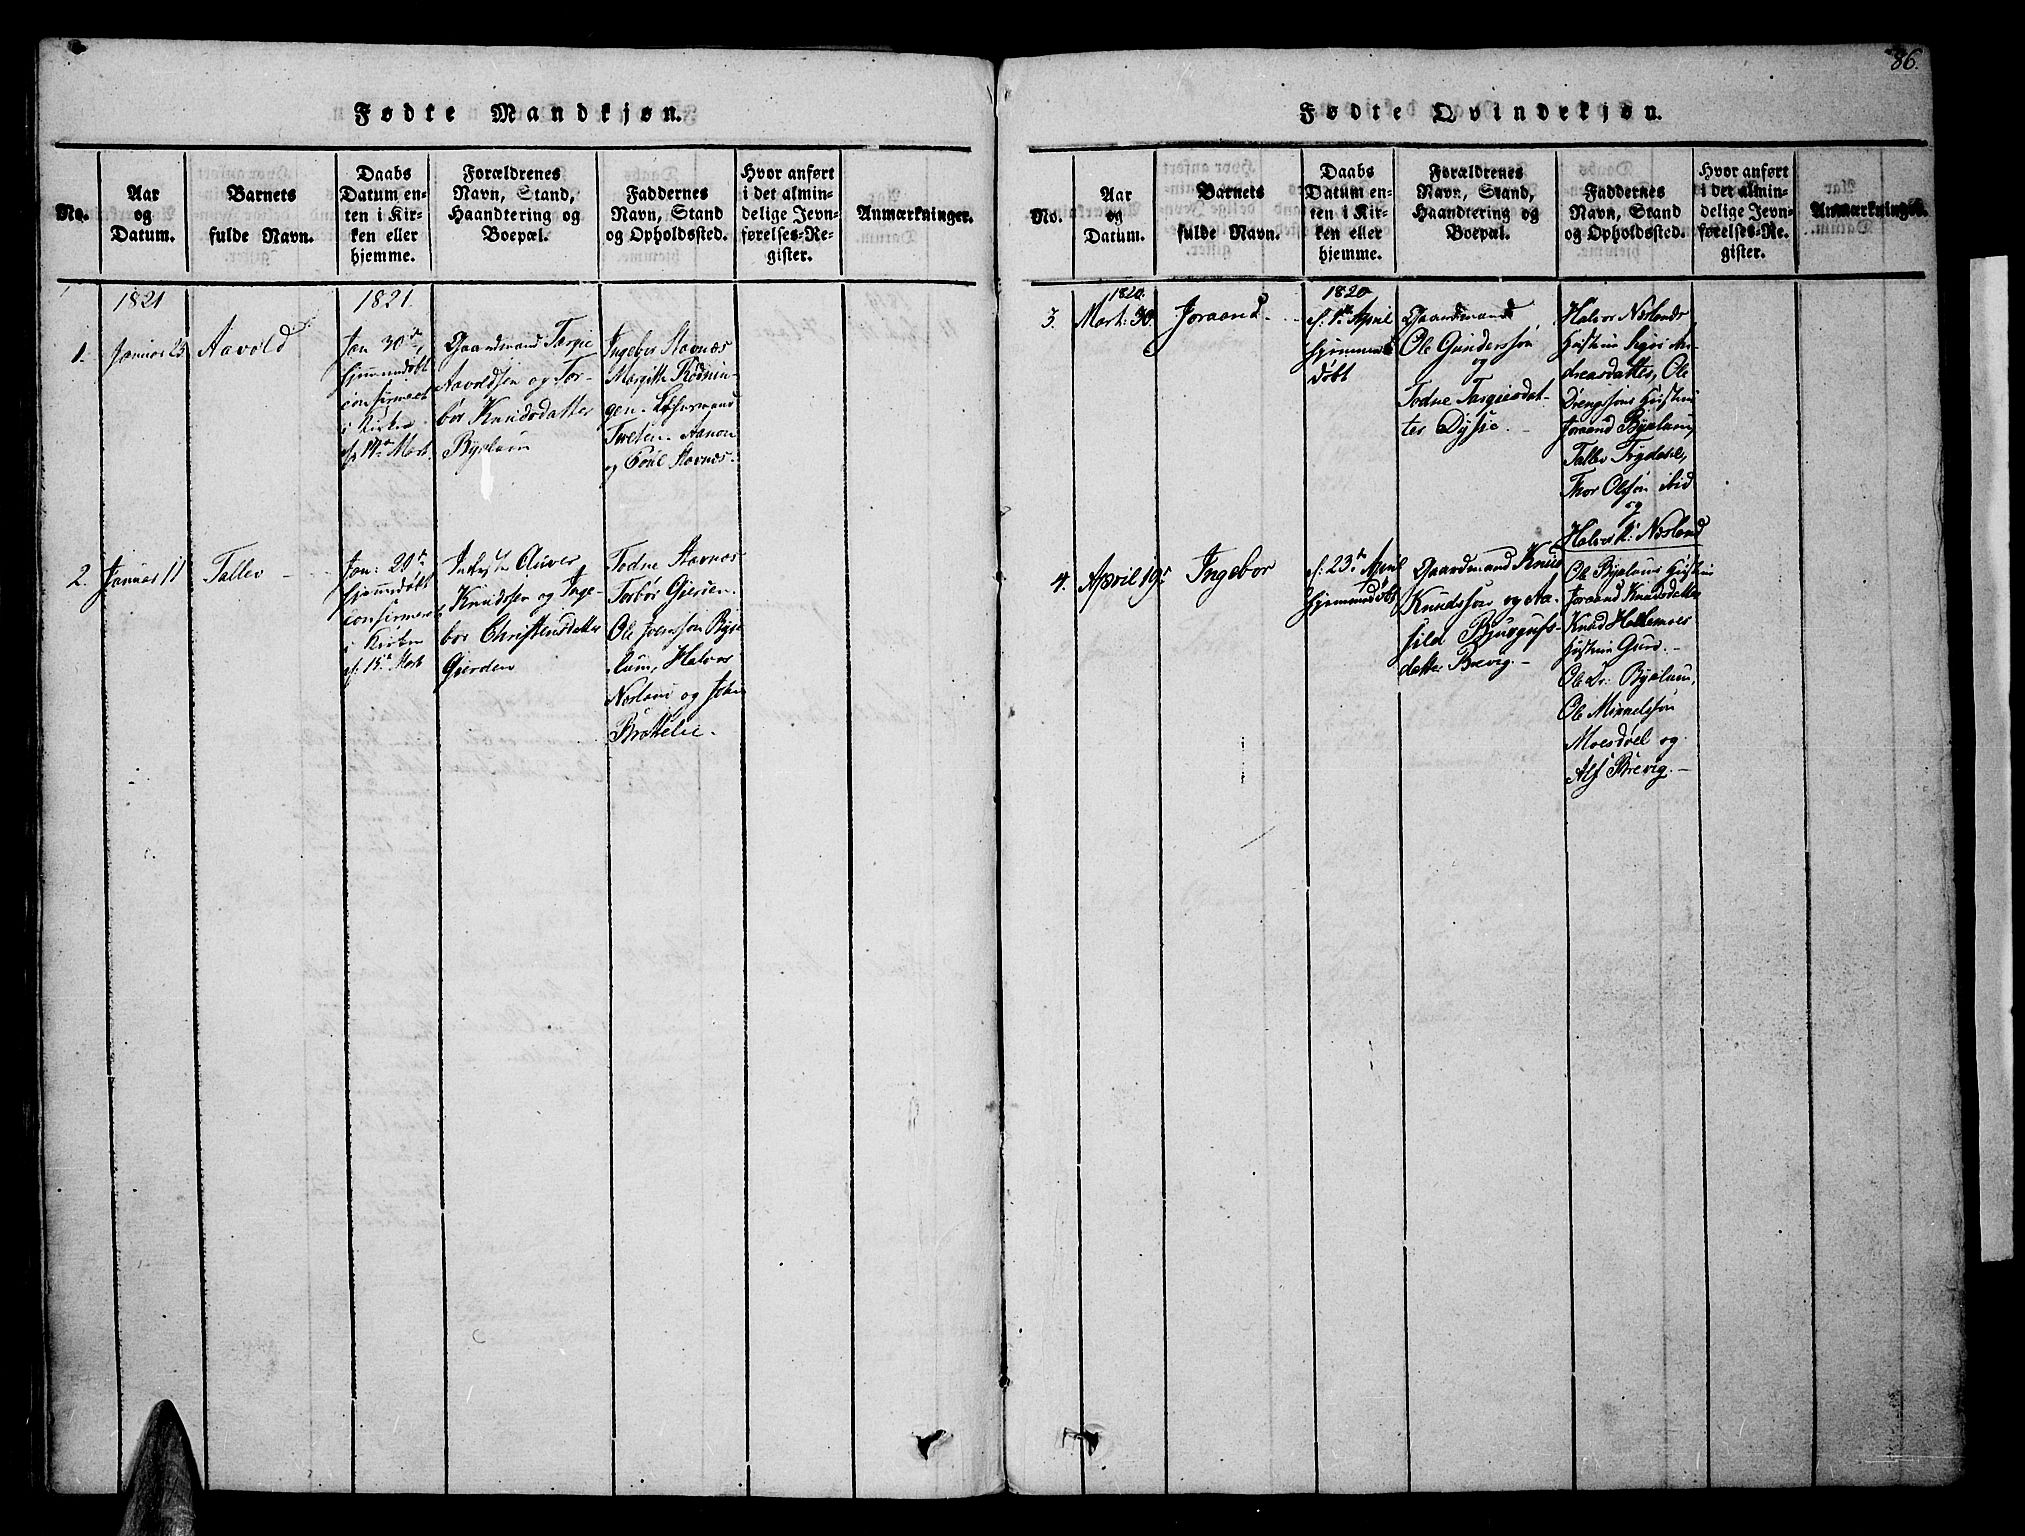 86.
Fødte Mandkjøn.
No.
Aar
og
Datum.
Barnets
fulde Navn.
Daabs
Datum en-
ten i Kir-
ken eller
hjemme.
Forældrenes
Navn, Stand,
Haandtering og
Boepæl.
Faddernes
Navn, Stand
og Opholdssted.
Hvor anført
i det almin-
delige Jevn-
førelses-Re-
gister.
Anmærkninger.
1821
1821
1.
Januar 23
Aavold
Jan 30te
hjemmedøbt
confirmeret
i Kirken
d. 14de Mart.
Gaardmand Targie
Aavoldsen og Tor-
bor Knudsdatter
Bygland
Ingebor Stavnæs
Margith Rødnin-
gen
Tveten. Aanon
og Stavnæs.
2.
Januar 11
Tallev
Jan: 20de
hjemmedøbt
confirmeret
i Kirken
d. 15de Mart
Knudssen og Inge-
bor Christensdatter
Gjerden
Todne Stavnæs
Torbor Gjerden.
Ole Joenssøn
Halvor
Nesland og
Brottelie.
Fødte Qvindekjøn.
No.
Aar
og
Datum.
Barnets
fulde Navn.
Daabs
Datum en-
ten i Kir-
ken eller
hjemme.
Forældrenes
Navn, Stand,
Haandtering og
Boepæl.
Faddernes
Navn, Stand
og Opholdssted.
Hvor anført
i det almin-
delige Jevn-
førelses-Re-
gister.
Anmærkninger.
1820.
1820
3.
Mart. 30.
Joraand.
d. 1ste April
hjemme
døbt
Gaardmand
Ole Gunderssøn
og
Todne Targiesdat-
ter Dysie.
Halvor Neslands
Hustrue Sigri An-
dreasdatter, Ole
Drengssøns Hustrue
Joraand
Tallev
Thor Olssøn ibid
og
Halvor K: Nesland
4.
April 19de
Ingebor
d. 23de April
hjemmedøbt
Gaardmand Knud
Knudssøn og Aa-
sild Bjurgufs-
datter Brevig.
Hustrue
Joraand Knudsdatter
Knud
Hustrue Guro.
Ole Dr:
Ole Mikkelssøn
Moesdøel og
Alf Brevig.